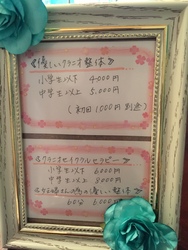 ≪優しいクラニオ整体≫
小学生以下 4000円
中学生以上 5,000円
(初回1000円別途)
≪クラニオセイクラルセラピー≫
小学生以下 6000円
中学生以上 9000円
の優しい整体≫
60分 6000円